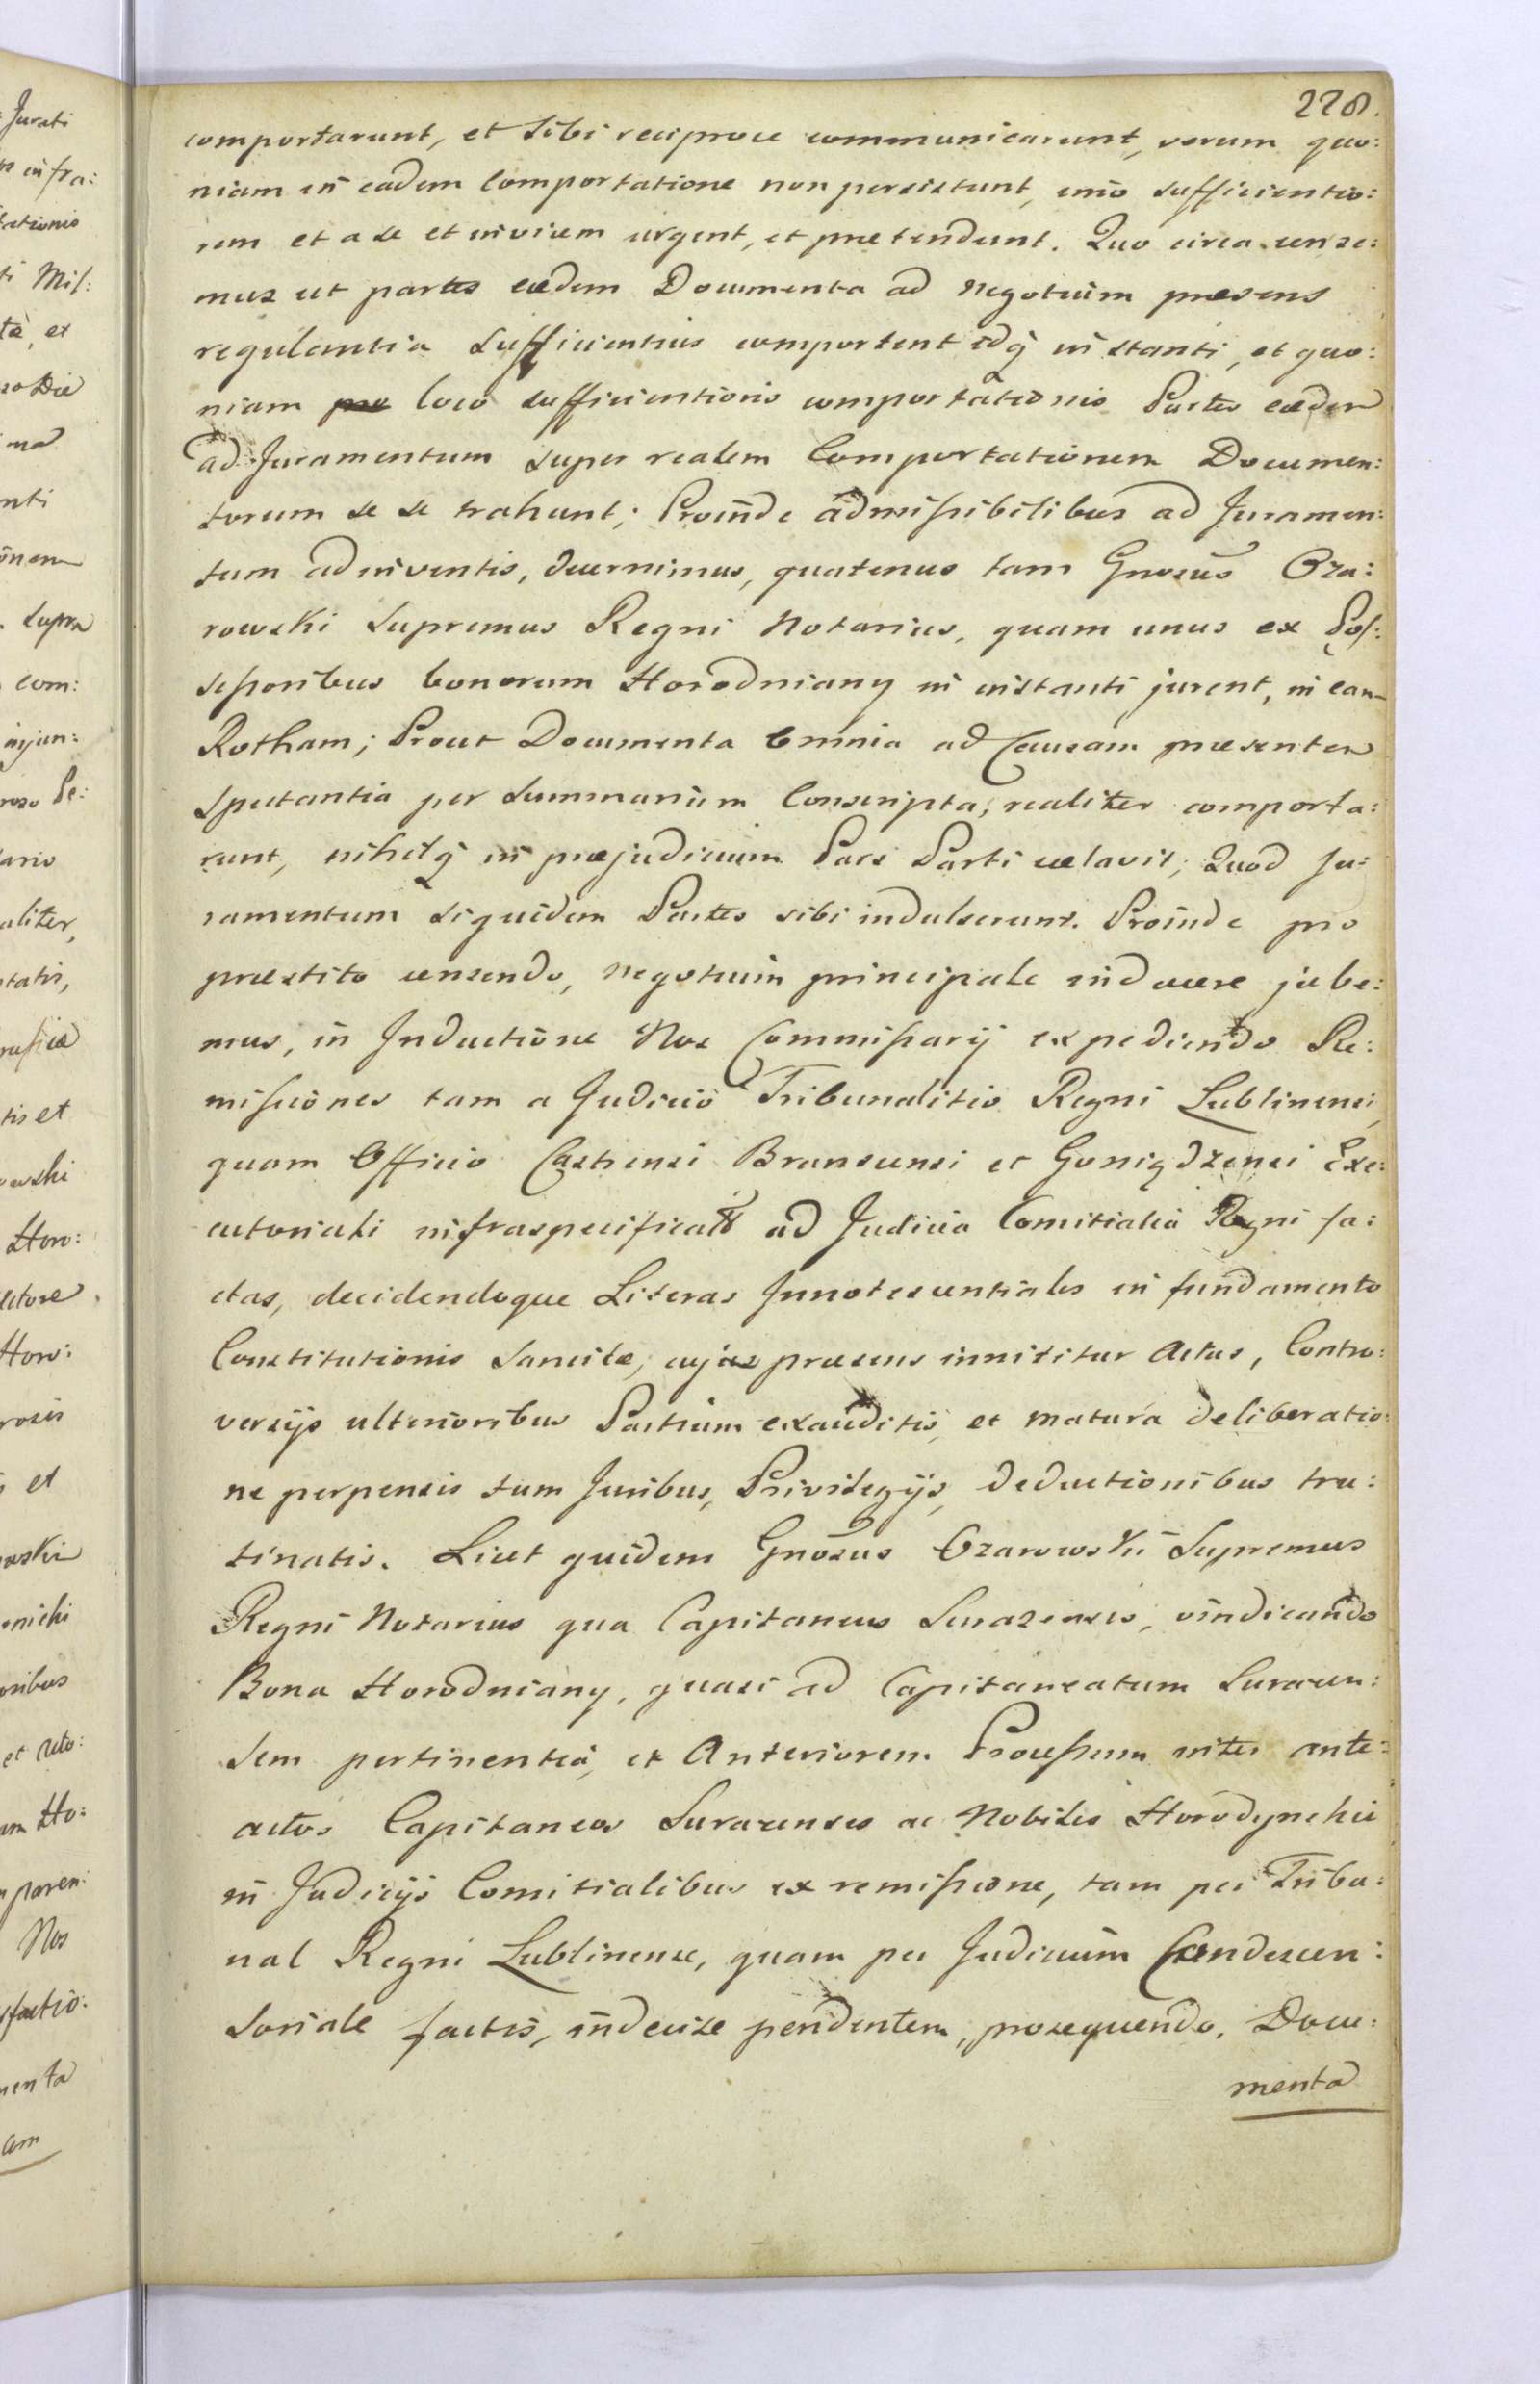 228.
comportarunt, et sibi reciproce communicarunt, verum quo:
niam in eadem Comportatione non persistunt, imo sufficientio:
rem et a se et invicem urgent, et praetendunt. Quo circa cense:
mus ut partes eaedem Documenta ad negotium praesens
regulantia sufficientius comportent idq in stanti, et quo:
niam loco sufficientioris comportationis Partes eaedem
ad Juramentum super realem Comportationem Documen:
torum se se trahunt; Proinde admissibilibus ad Juramen:
tum adinventis, decernimus, quatenus tam Gnosus Oza:
rowski Supremus Regni Notarius, quam unus ex Pos:
sessoribus bonorum Horodniany in instanti jurent, in eam
Rotham; Prout Documenta Omnia ad Causam praesentem
spectantia per Summarium Conscripta, realiter comporta:
runt, nihilq in praejudicium Pars Parti celavit, Quod Ju:
ramentum siquidem Partes sibi indulserunt. Proinde pro
praestito censendo, negotium principale inducere jube:
mus, in Inductione Nos Commissarij expediendo Re:
missiones tam a Judicio Tribunalitio Regni Lublinensi,
quam Officio Castrensi Branscensi et Goniądzensi Exe:
cutoriali infraspecificats ad Judicia Comitialia Regni fa:
ctas, decidendoque Literas Innotescentiales in fundamento
Constitutionis Sancitae, cujus praesens innititur Actus, Contro:
versijs ulterioribus Partium exauditis, et matura deliberatio:
ne perpensis tum Juribus, Privilegijs, deductionibus tru:
tinatis. Licet quidem Gnosus Ozarowski Supremus
Regni Notarius qua Capitaneus Surazensis, vindicando
Bona Horodniany, quasi ad Capitaneatum Suracen:
sem pertinentia, et Anteriorem Processum inter ante:
actos Capitaneos Suracenses ac Nobiles Horodynskie
in Judicijs Comitialibus ex remissione, tam per Tribu:
nal Regni Lublinense, quam per Judicium Condescen:
soriale factis, indecise pendentem, prosequendo, Docu:
menta